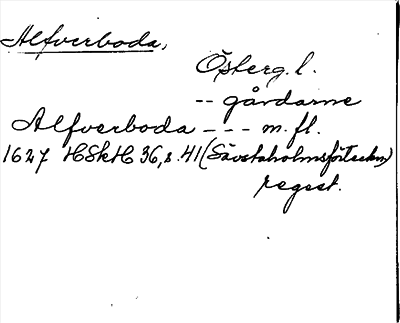 Alfverboda,
Österg. l.
-- gårdarne
Alfverboda --- m. fl.
1627 HSkH 36, s. 41 (Sävstaholmsförteckn)
regest.